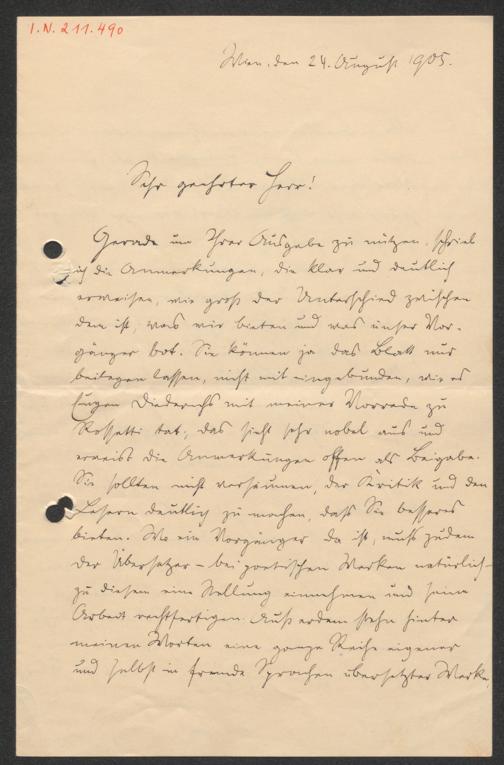 I.N. 211.490
Wien, den 24. August 1905.
Sehr geehrter Herr!
Gerade um Ihrer Ausgabe zu nützen, schrieb
ich die Anmerkungen, die klar und deutlich
erweisen, wie groß der Unterschied zwischen
dem ist, was wir bieten und was unser Vor-
gänger bot. Sie können ja das Blatt nur
beilegen lassen, nicht mit eingebunden, wie es
Eugen Diederichs mit meiner Vorrede zu
Rossetti tat; das sieht sehr nobel aus und
erweist die Anmerkungen offen als Beigabe.
Sie sollten nicht versäumen, der Kritik und den
Lesern deutlich zu machen, daß Sie besseres
bieten. Wo ein Vorgänger da ist, muß zudem
der Übersetzer – bei poetischen Werken natürlich –
zu diesem eine Stellung einnehmen und seine
Arbeit rechtfertigen. Außerdem stehn hinter
meinen Worten eine ganze Reihe eigener
und selbst in fremde Sprachen übersetzter Werke,